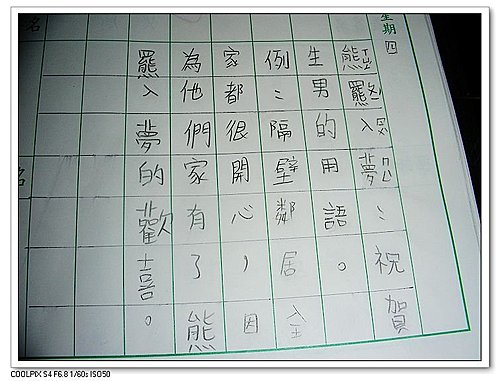 星期四
熊羆入夢：祝賀
生男的用語。
例：隔壁鄰居全
家都很開心，因
為他們家有了熊
羆入夢的歡喜。
名
COOLPIX S4 F6.8 1/60s ISO50